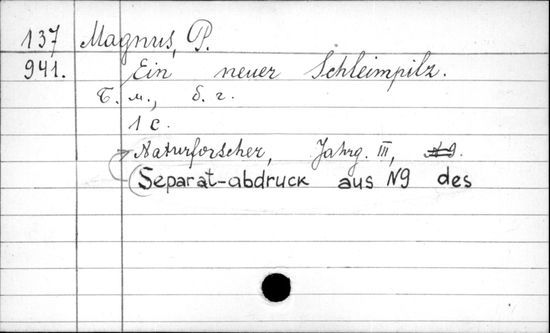 137 Magnus, P.
941. Ein neuer Schleimpilz.
Б. м., б. г.
1 с.
Naturforscher, Jahrg. III,
(Separat-abdruck aus N9 des